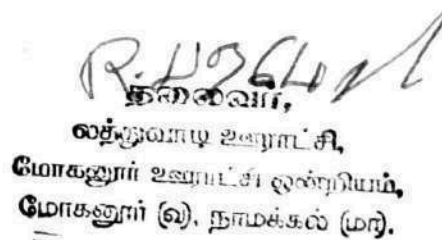 தலைவர்,
லத்துவாடி ஊராட்சி,
மோகனூர் ஊராட்சி ஒன்றியம்,
மோகனூர் (வ), நாமக்கல் (மா).